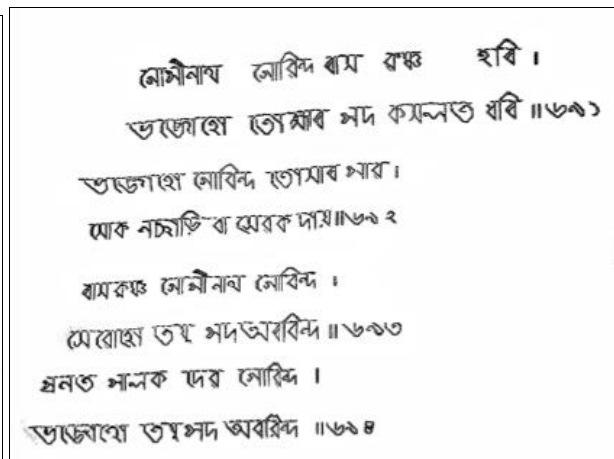 গোপীনাথ গোবিন্দ ৰাম কৃষ্ণ হৰি ।
ভজোহো তোমাৰ পদ কমলত ধৰি ॥৬৯১
ভজোহো গোবিন্দ তোমাৰ পাৱ ।
মোক নছাড়ি বা সেৱক দায় ॥৬৯২
ৰামকৃষ্ণ গোপীনাথ গোবিন্দ ।
সেৱোহো তযু পদ অৰবিন্দ ॥৬৯৩
প্ৰনত পালক দেৱ গোবিন্দ ।
ভজোহো তযু পদ অৰবিন্দ ॥৬৯৪